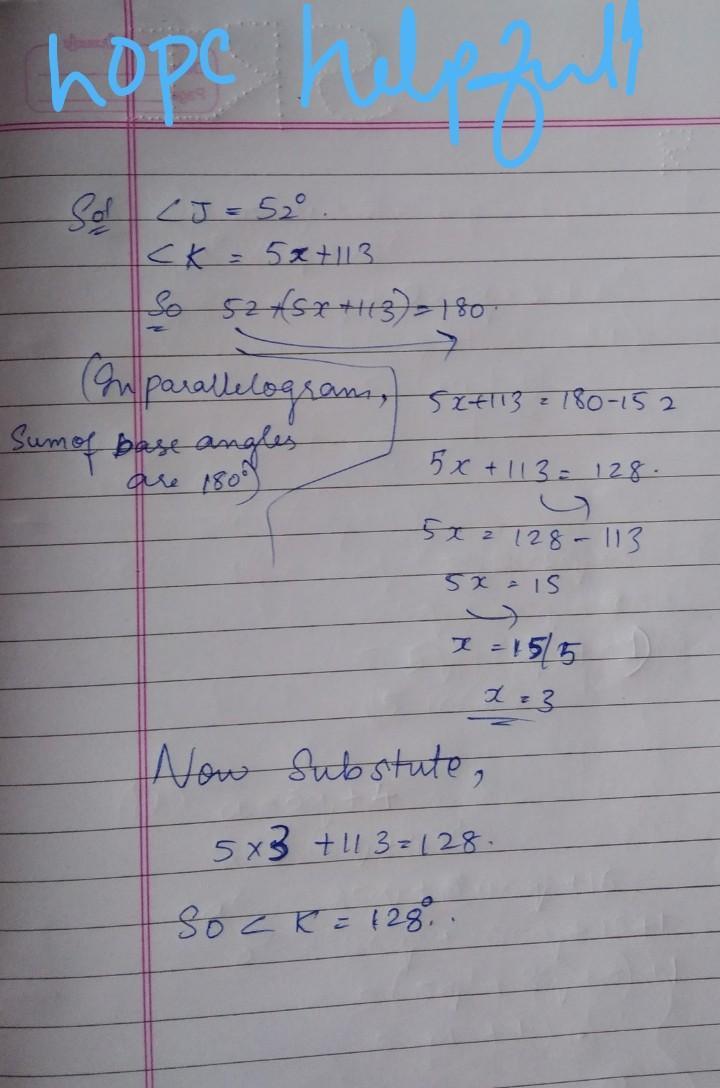 hope helpfull
Sol ∠J = 52°.
∠K = 5x+113
So 52+(5x+113)=180.
(In parallelogram,
Sum of base angles
are 180°)
5x+113 = 180-152
5x+113 = 128.
5x = 128-113
5x = 15
x = 15/5
x = 3
Now Substute,
5x3 +113=128.
So ∠K = 128°..